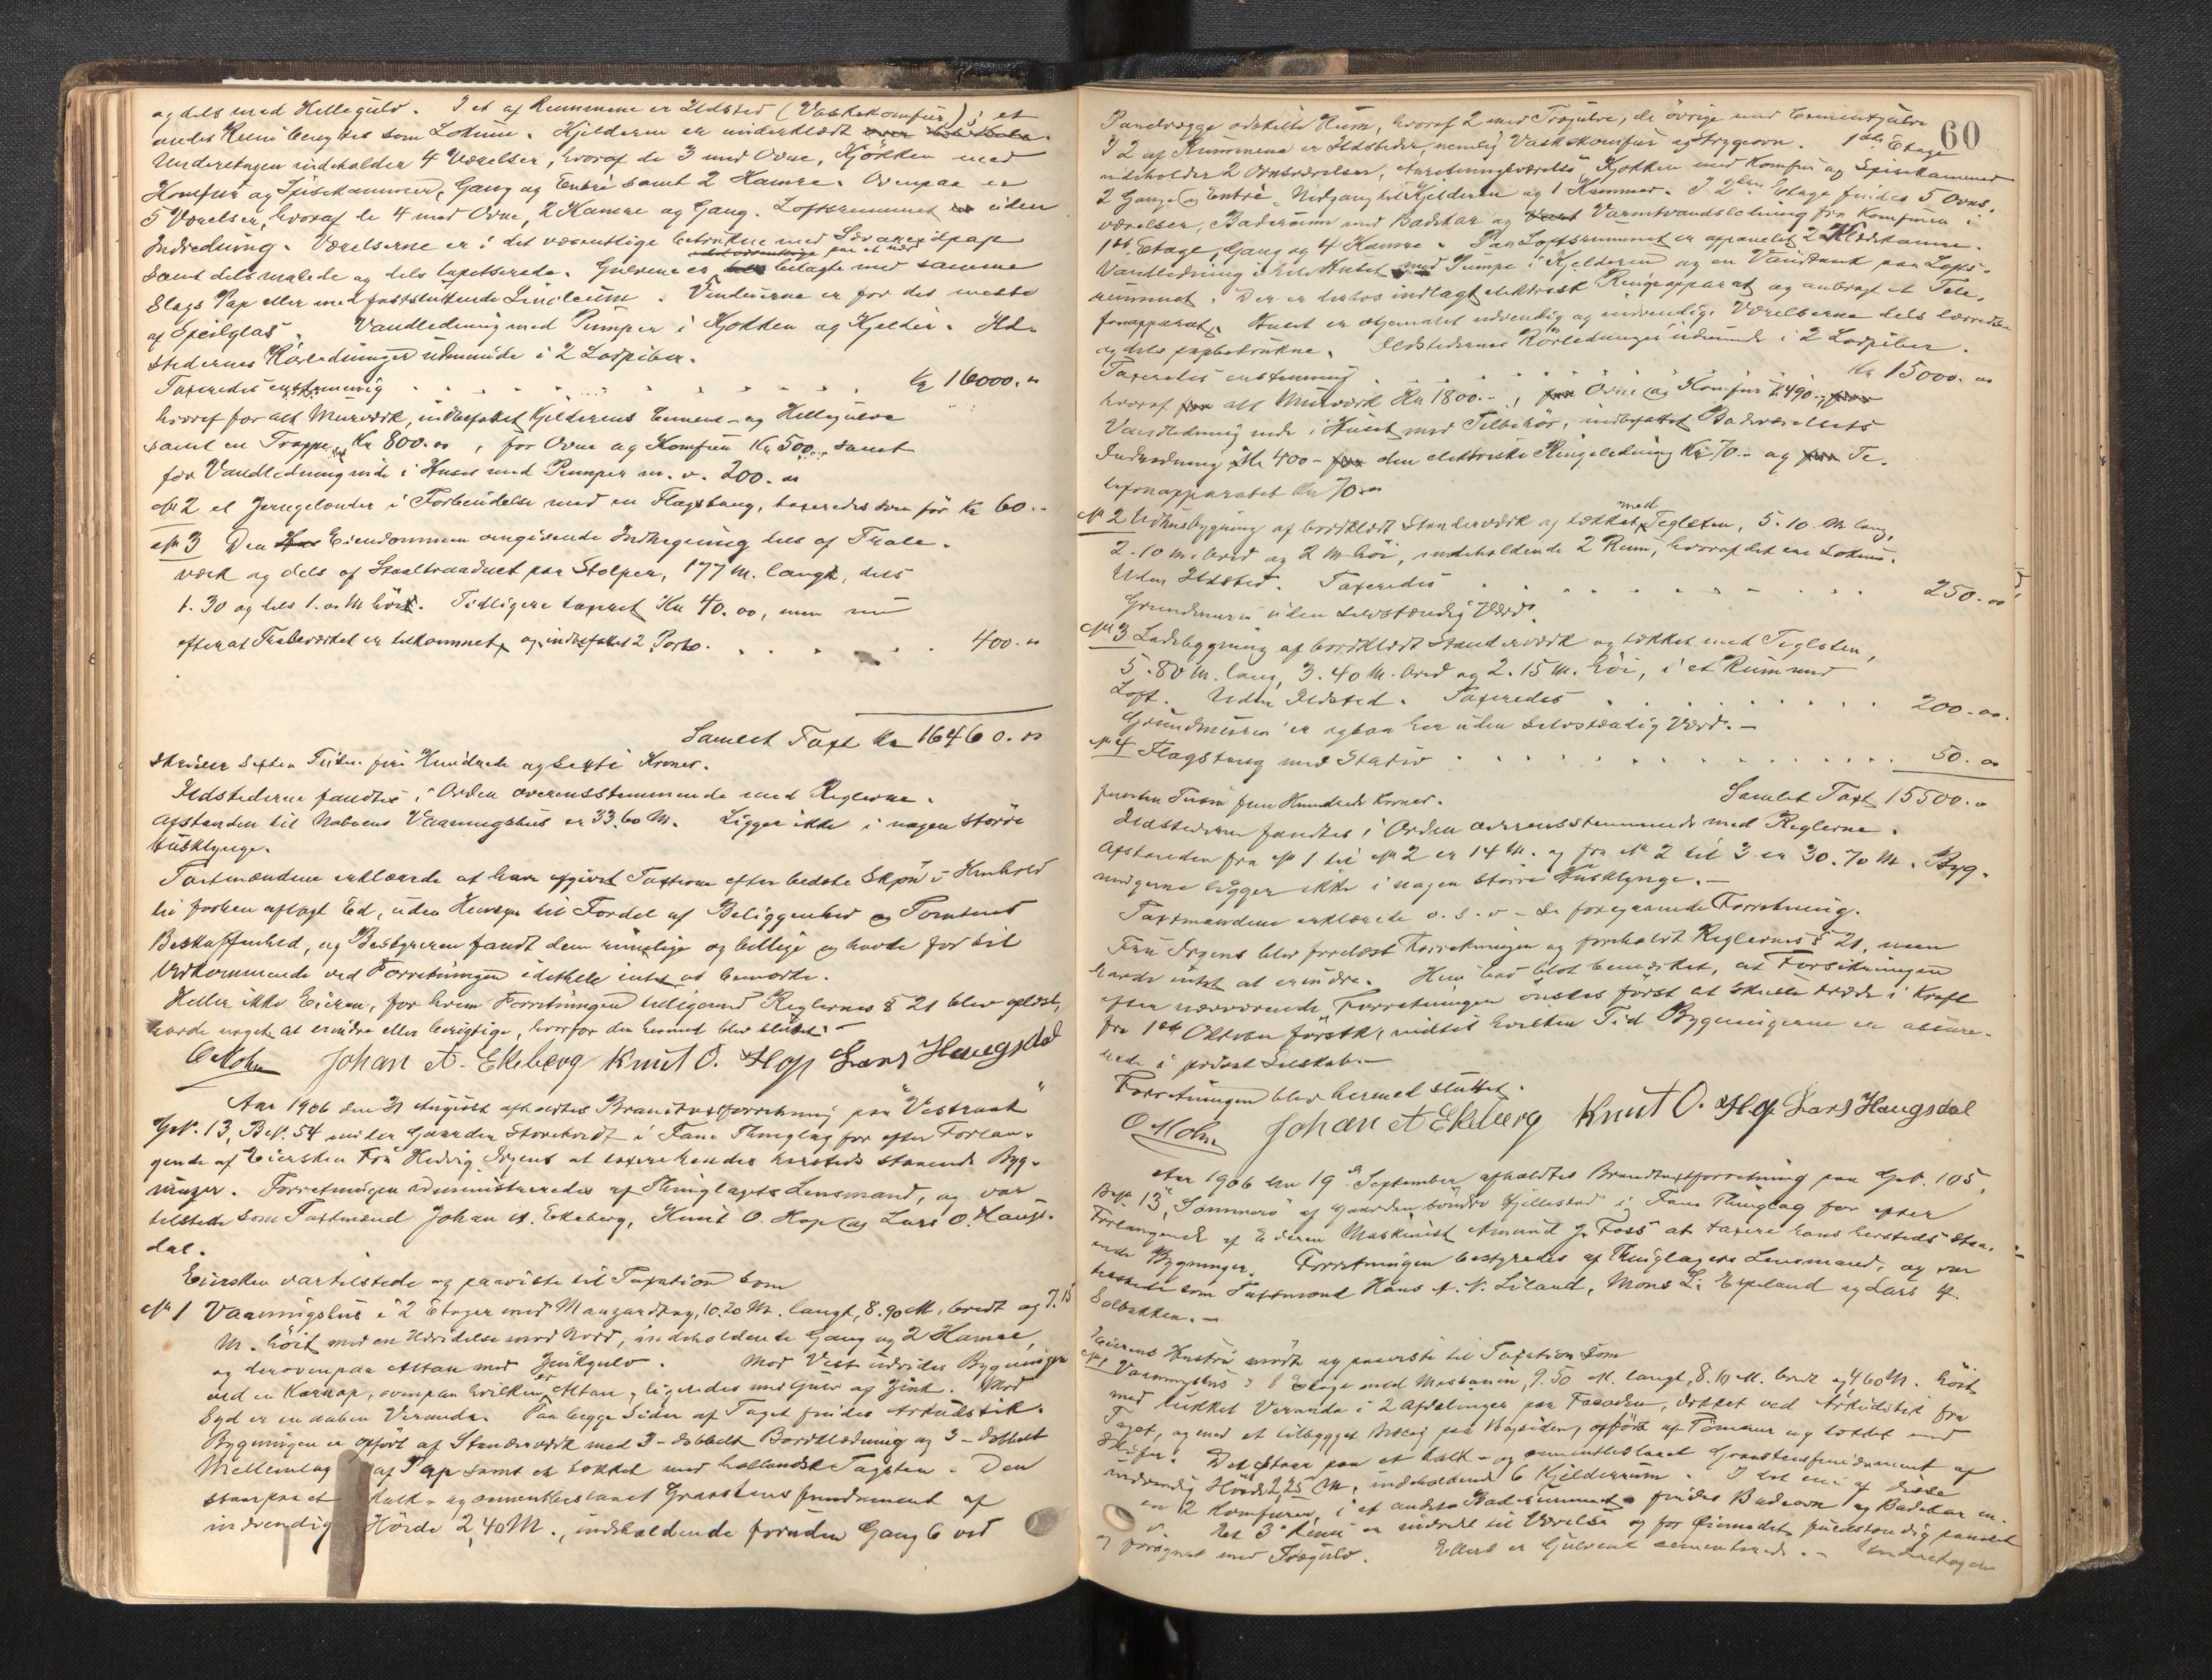 og dels med Hellegulv. I et af Rummene er Ildsted (Vaskekomfur); et
andet Rum benyttes som Lokum. Kjelderen er underklædt
Underetagen indeholder 4 Værelser, hvoraf de 3 med Ovne, Kjökken med
Komfur og Spisekammer, Gang og Entré samt 2 Kamre. Ovenpaa er
5 Værelser, hvoraf de 4 med Ovne, 2 Kamre og Gang. Loftsrummet er uden
Indredning. Værelserne er i det væsentlige betrukne med
samt dels malede og dels tapetserede. Gulvene er belagte med samme
Slags Pap eller med fastsluttende Linoleum. Vinduerne er for det meste
af Speilglas. Vandledning med Pumper i Kjökken og Kjelder. Ild-
stedernes Rörledninger udmunde i 2 Lodpiber.
Taxeredes enstemmig . . . Kr 16000.00
hvoraf for alt Murværk, indbefattet Kjelderens Cement- og Hellegulve
samt en Trappe, Kr 800.00, for Ovne og Komfur Kr 500.. samt
for Vandledning inde i Huset med Pumper m. v. 200.00
No 2 et Jerngelander i Forbindelse med en Flagstang, taxeredes som för Kr 60..
No 3 Den Eiendommen omgivende Indhegning dels af Trale-
værk og dels af Staaltraadnet paa Stolper, 177 M. langt, dels
1.30 og dels 1.00 M höit. Tidligere taxeret Kr 40.00, men nu
efter at Traleværket er tilkommet, og indbefattet 2 Porte. . . . 400.00
Samlet Taxt Kr 16460.00
skriver Sexten Tusen fire Hundrede og sexti Kroner.
Ildstederne fandtes i Orden overensstemmende med Reglerne.
Afstanden til Naboens Vaaningshus er 33.60 M. Ligger ikke i nogen större
Husklynge.
Taxtmændene erklærede at have afgivet Taxterne efter bedste Skjön i Henhold
til forhen aflagt Ed, uden Hensyn til Fordel af Beliggenhed og Tomtens
Beskaffenhed, og Bestyreren fandt dem rimelige og billige og havde for sit
Vedkommende ved Forretningen idethele intet at bemærke.
Heller ikke Eieren, for hvem Forretningen tilligemed Reglernes § 21 blev oplæst,
havde noget at erindre eller berigtige, hvorfor den hermed blev sluttet. -
O Mohn Johan A. Ekeberg Knut O. Hop Lars Haugsdal
Aar 1906 den 31 August afholdtes Branntaxtforretning paa "Vestraat"
GNo. 13, BNo. 54 under Gaarden Storetvedt i Fane Thinglag for efter Forlan-
gende af Eiersken Fru Hedvig Irgens at taxere hendes hersteds staaende Byg-
ninger. Forretningen administreredes af Thinglagets Lensmand, og var
tilstede som Taxtmænd Johan A. Ekeberg, Knut O. Hop og Lars O. Haugs-
dal.
Eiersken var tilstede og paaviste til Taxation som
No 1 Vaaningshus i 2 Etager med Mansardtag, 10.20 M. langt, 8.90 M. bredt og 7.15
M. höit med en Udvidelse mod Nord, indeholdende Gang og 2 Kamre,
og derovenpaa Altan med Zinkgulv. Mod Vest udvides Bygningen
ved en Karnap, ovenpaa hvilken er Altan, ligeledes med Gulv af Zink. Mod
Syd er en aaben Veranda. Paa begge Sider af Taget findes Arkudstik.
Bygningen er opfört af Stenderværk med 3-dobbelt Bordklædning og 3-dobbelt
Mellemlag af Pap samt er tækket med hollandsk Tagsten. Den
staar paa et kalk- og cementbeslaaet Graastensfundament af
indvendig Höide 2,40 M., indeholdende foruden Gang 6 ved
60
Panelvægge adskilte Rum, hvoraf 2 med Trægulve, de övrige med Cementgulve
I 2 af Rummene er Ildsteder, nemlig Vaskekomfur og Strygeovn. 1ste Etage
indeholder 2 Ovnsværelser, Anretningsværelse, Kjökken med Komfur og Spisekammer
2 Gange og Entré, Nedgang til Kjelderen og 1 Kammer. I 2den Etage findes 5 Ovns-
værelser, Baderum med Badekar og Varmtvandsledning fra Komfuren i
1ste Etage, Gang og 4 Kamre. Paa Loftsrummet er afpanelet 2 Klædekamre.
Vandledning i hele Huset med Pumpe i Kjelderen og en Vandtank paa Lofts-
rummet. Der er derhos indlagt elektrisk Ringeapparat og anbragt et Tele-
fonapparat. Huset er oljemalet udvendig og indvendig. Værelserne dels lærreds
og dels papbetrukne. Ildstedernes Rörledninger udmunde i 2 Lodpiber.
Taxeredes enstemmig . . . Kr 15000.00
hvoraf alt Murværk Kr 1800.-, Ovne og Komfur K 490.-,
Vandledning inde i Huset med Tilbehör, indbefattet Badeværelsets
Indredning, Kr 400 - den elektriske Ringeledning Kr 70.- og Te-
lefonapparatet Kr 70.00
No 2 Udhusbygning af bordklædt Stenderværk og tækket med Teglsten, 5.10 M lang,
2.10 m. bred og 2 M höi, indeholdende 2 Rum, hvoraf det ene Lokum.
Uden Ildsted. Taxeredes . . . 250.00
Grundmuren uden selvstændig Værd.
No 3 Ladebygning af bordklædt Stenderværk og tækket med Teglsten,
5.80 M. lang, 3.40 M. bred og 2.15 M. höi, i et Rum med
Loft. Uden Ildsted. Taxeredes . . . 200.00.
Grundmuren er ogsaa her uden selvstændig Værd. -
No 4 Flagstang med Stativ . . . 50.00
Samlet Taxt 15500.00
femten Tusen fem Hundrede Kroner.
Ildstederne fandtes i Orden overensstemmende med Reglerne.
Afstanden fra No 1 til No 2 er 14 M. og fra No 2 til 3 er 30.70 M. Byg-
ningerne ligger ikke i nogen större Husklynge. -
Taxtmændene erklærede o. s. v - se foregaaende Forretning.
Fru Irgens blev forelæst Forretningen og foreholdt Reglernes § 21, men
havde intet at erindre. Hun bad blot bemærket, at Forsikringen
efter nærværende Forretningen önskes först at skulle træde i Kraft
fra 1ste Oktober förstk, indtil hvilken Tid Bygningerne er assure-
rede i privat Selskab. -
Forretningen blev hermed sluttet.
O Mohn Johan A Ekeberg Knut O. Hop Lars Haugsdal
Aar 1906 den 19de September afholdtes Brandtaxtforretning paa GNo. 105,
BNo. 13, "Sommero" af Gaarden söndre Hjellestad i Fane Thinglag for efter
Forlangende af Eieren Maskinist Amund J. Foss at taxere hans hersteds staa-
ende Bygninger. Forretningen bestyredes af Thinglagets Lensmand, og var
tilstede som Taxtmænd Hans A. N. Liland, Mons L. Espeland og Lars A.
Solbakken. -
Eierens Hustru mödte og paaviste til Taxation som
No 1 Vaaningshus i 1 Etage med Mesanin, 9.50 M. langt, 8.10 M. bredt og 4.60 M. höit
med lukket Veranda i 2 Afdelinger paa Facaden, dækket ved Arkudstik fra
Taget, og med et tilbygget Bislag paa Bagsiden, opfört af Tömmer og tækket med
Skifer. Det staar paa et kalk- og cementbeslaaet Graastensfundament af
indvendig Höide 2.25 M, indeholdende 6 Kjelderrum. I det ene af disse
er 2 Komfurer, i et andet Baderummet findes Badeovn og Badekar m.
v. Det 3die Rum er indredet til Værelse og for Öiemedet fuldstændig panelet
og forsynet med Trægulv. Ellers er Gulvene cementerede. - Underetagen